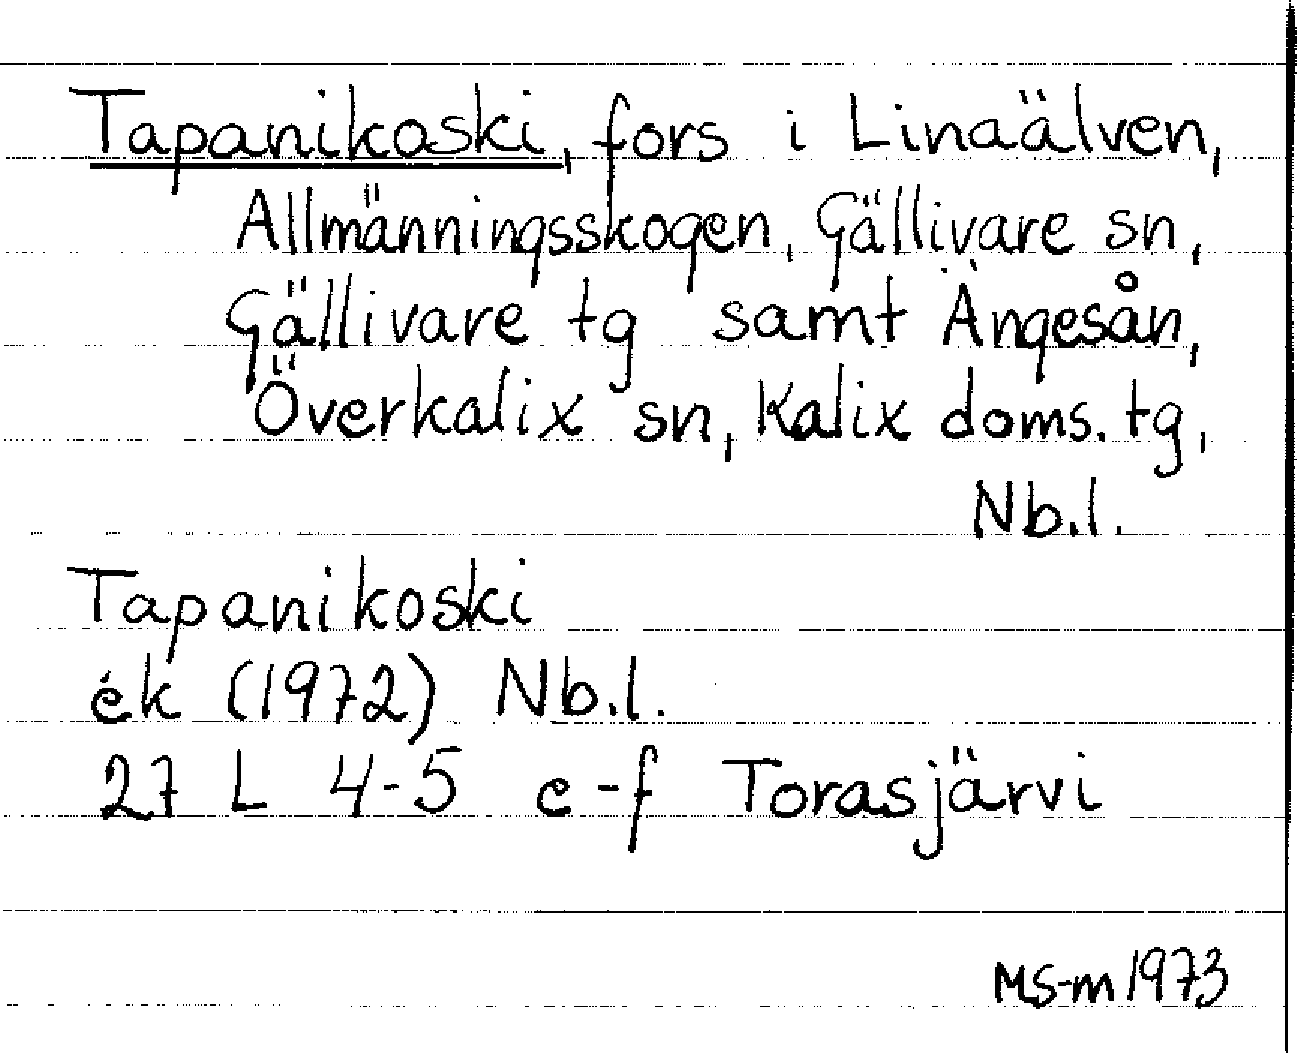 Tapanikoski, fors i Linaälven,
Allmänningsskogen, Gällivare sn,
Gällivare tg samt Ängesån,
Överkalix sn, Kalix doms. tg,
Nb.l.
Tapanikoski
ek (1972) Nb.l.
27 L 4-5 e-f Torasjärvi
MS-m 1973